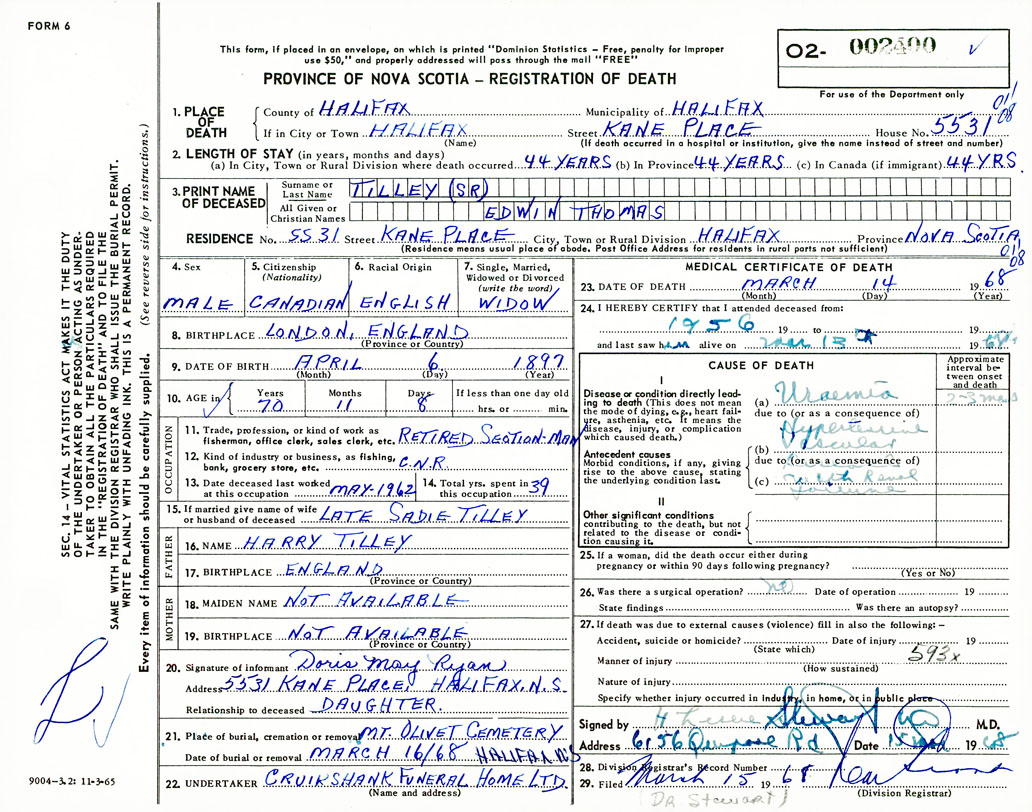 FORM 6
This form, if placed in an envelope, on which is printed "Dominion Statistics – Free, penalty for improper
use $50," and properly addressed will pass through the mail "FREE"
PROVINCE OF NOVA SCOTIA – REGISTRATION OF DEATH
O2- 002400 ✓
For use of the Department only
011
08
1. PLACE OF DEATH
County of HALIFAX Municipality of HALIFAX
If in City or Town HALIFAX Street KANE PLACE House No. 5531
(Name) (If death occurred in a hospital or institution, give the name instead of street and number)
2. LENGTH OF STAY (in years, months and days)
(a) In City, Town or Rural Division where death occurred 44 YEARS (b) In Province 44 YEARS (c) In Canada (if immigrant) 44 YRS
3. PRINT NAME OF DECEASED
Surname or Last Name TILLEY (SR)
All Given or Christian Names EDWIN THOMAS
RESIDENCE No. 5531 Street KANE PLACE City, Town or Rural Division HALIFAX Province NOVA SCOTIA
(Residence means usual place of abode. Post Office Address for residents in rural parts not sufficient)
011
08
4. Sex MALE
5. Citizenship (Nationality) CANADIAN
6. Racial Origin ENGLISH
7. Single, Married, Widowed or Divorced (write the word) WIDOW
8. BIRTHPLACE LONDON, ENGLAND
(Province or Country)
9. DATE OF BIRTH APRIL 6 1897
(Month) (Day) (Year)
10. AGE in Years 70 Months 11 Days 8 If less than one day old
hrs. or min.
OCCUPATION
11. Trade, profession, or kind of work as
fisherman, office clerk, sales clerk, etc. RETIRED SECTION-MAN
12. Kind of industry or business, as fishing,
bank, grocery store, etc. C.N.R.
13. Date deceased last worked
at this occupation MAY-1962
14. Total yrs. spent in
this occupation 39
15. If married give name of wife
or husband of deceased LATE SADIE TILLEY
FATHER
16. NAME HARRY TILLEY
17. BIRTHPLACE ENGLAND
(Province or Country)
MOTHER
18. MAIDEN NAME NOT AVAILABLE
19. BIRTHPLACE NOT AVAILABLE
(Province or Country)
20. Signature of informant Doris May Ryan
Address 5531 KANE PLACE, HALIFAX, N.S.
Relationship to deceased DAUGHTER.
21. Place of burial, cremation or removal MT. OLIVET CEMETERY
Date of burial or removal MARCH 16/68 HALIFAX NS
22. UNDERTAKER CRUIKSHANK FUNERAL HOME LTD.
(Name and address)
MEDICAL CERTIFICATE OF DEATH
23. DATE OF DEATH MARCH 14 1968
(Month) (Day) (Year)
24. I HEREBY CERTIFY that I attended deceased from:
1956 19 to 19
and last saw him alive on Mar 13 19 68
CAUSE OF DEATH
Approximate interval between onset and death
I
Disease or condition directly leading
to death (This does not mean
the mode of dying, e.g., heart failure,
asthenia, etc. It means the
disease, injury, or complication
which caused death.)
(a) Uraemia
due to (or as a consequence of)
Hypertensive
Antecedent causes
Morbid conditions, if any, giving
rise to the above cause, stating
the underlying condition last.
(b) Vascular
due to (or as a consequence of)
(c) with Renal
failure
II
Other significant conditions
contributing to the death, but not
related to the disease or condition
causing it.
25. If a woman, did the death occur either during
pregnancy or within 90 days following pregnancy?
(Yes or No)
26. Was there a surgical operation? no Date of operation 19
State findings Was there an autopsy?
27. If death was due to external causes (violence) fill in also the following: –
Accident, suicide or homicide? Date of injury 19
(State which)
593x
Manner of injury
(How sustained)
Nature of injury
Specify whether injury occurred in industry, in home, or in public place
Signed by Stewart M.D.
Address 6156 Quinpool Rd Date 15 1968
28. Division Registrar's Record Number
29. Filed March 15 1968
(Division Registrar)
(DR Stewart)
SEC. 14 – VITAL STATISTICS ACT MAKES IT THE DUTY
OF THE UNDERTAKER OR PERSON ACTING AS UNDER-
TAKER TO OBTAIN ALL THE PARTICULARS REQUIRED
IN THE "REGISTRATION OF DEATH" AND TO FILE THE
SAME WITH THE DIVISION REGISTRAR WHO SHALL ISSUE THE BURIAL PERMIT.
WRITE PLAINLY WITH UNFADING INK. THIS IS A PERMANENT RECORD.
Every item of information should be carefully supplied. (See reverse side for instructions.)
9004-3.2: 11-3-65